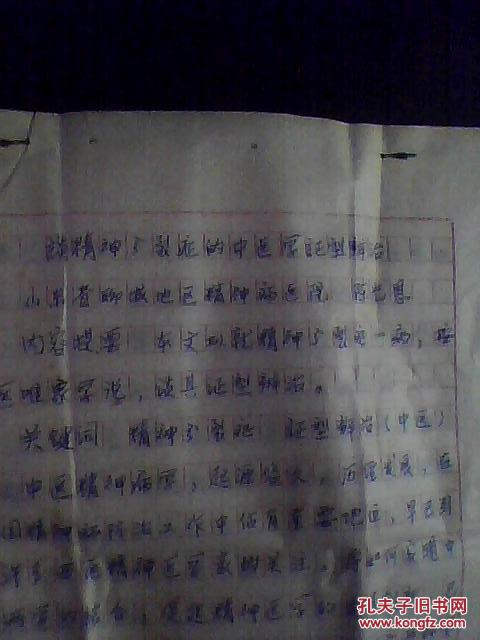 谈精神分裂症的中医学证型辨治
山东省聊城地区精神病医院
内容提要 本文以就精神分裂症一病,
医唯象学说,谈其证型辨治。
关键词 精神分裂症 证型辨治(中医)
中医精神病学,起源悠久,历经发展,在
国精神病防治工作中占有重要地位,早已引
许多西医精神医学家的关注。
促进精神医学的
孔夫子旧书网
www.kongfz.com